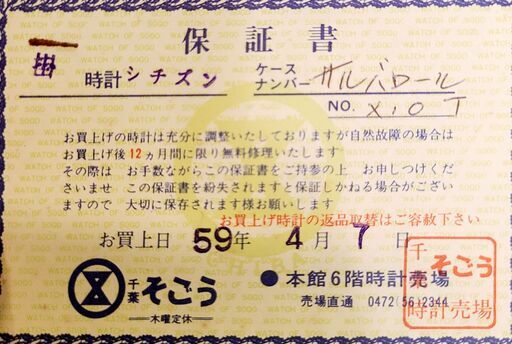 保証書
掛
時計 シチズン
ケースナンバー サルバロール
NO. X10T
お買上げの時計は充分に調整いたしておりますが自然故障の場合は
お買上げ後12ヵ月間に限り無料修理いたします
その際は お手数ながらこの保証書をご持参の上 お申しつけくだ
さいませ この保証書を紛失されますと保証しかねる場合がござい
ますので 大切に保存されます様お願いします
お買上げ時計の返品取替はご容赦下さい
お買上日 59年 4月 7日
千葉 そごう
木曜定休
●本館6階時計売場
売場直通 0472(56)2344
千葉 そごう
時計売場